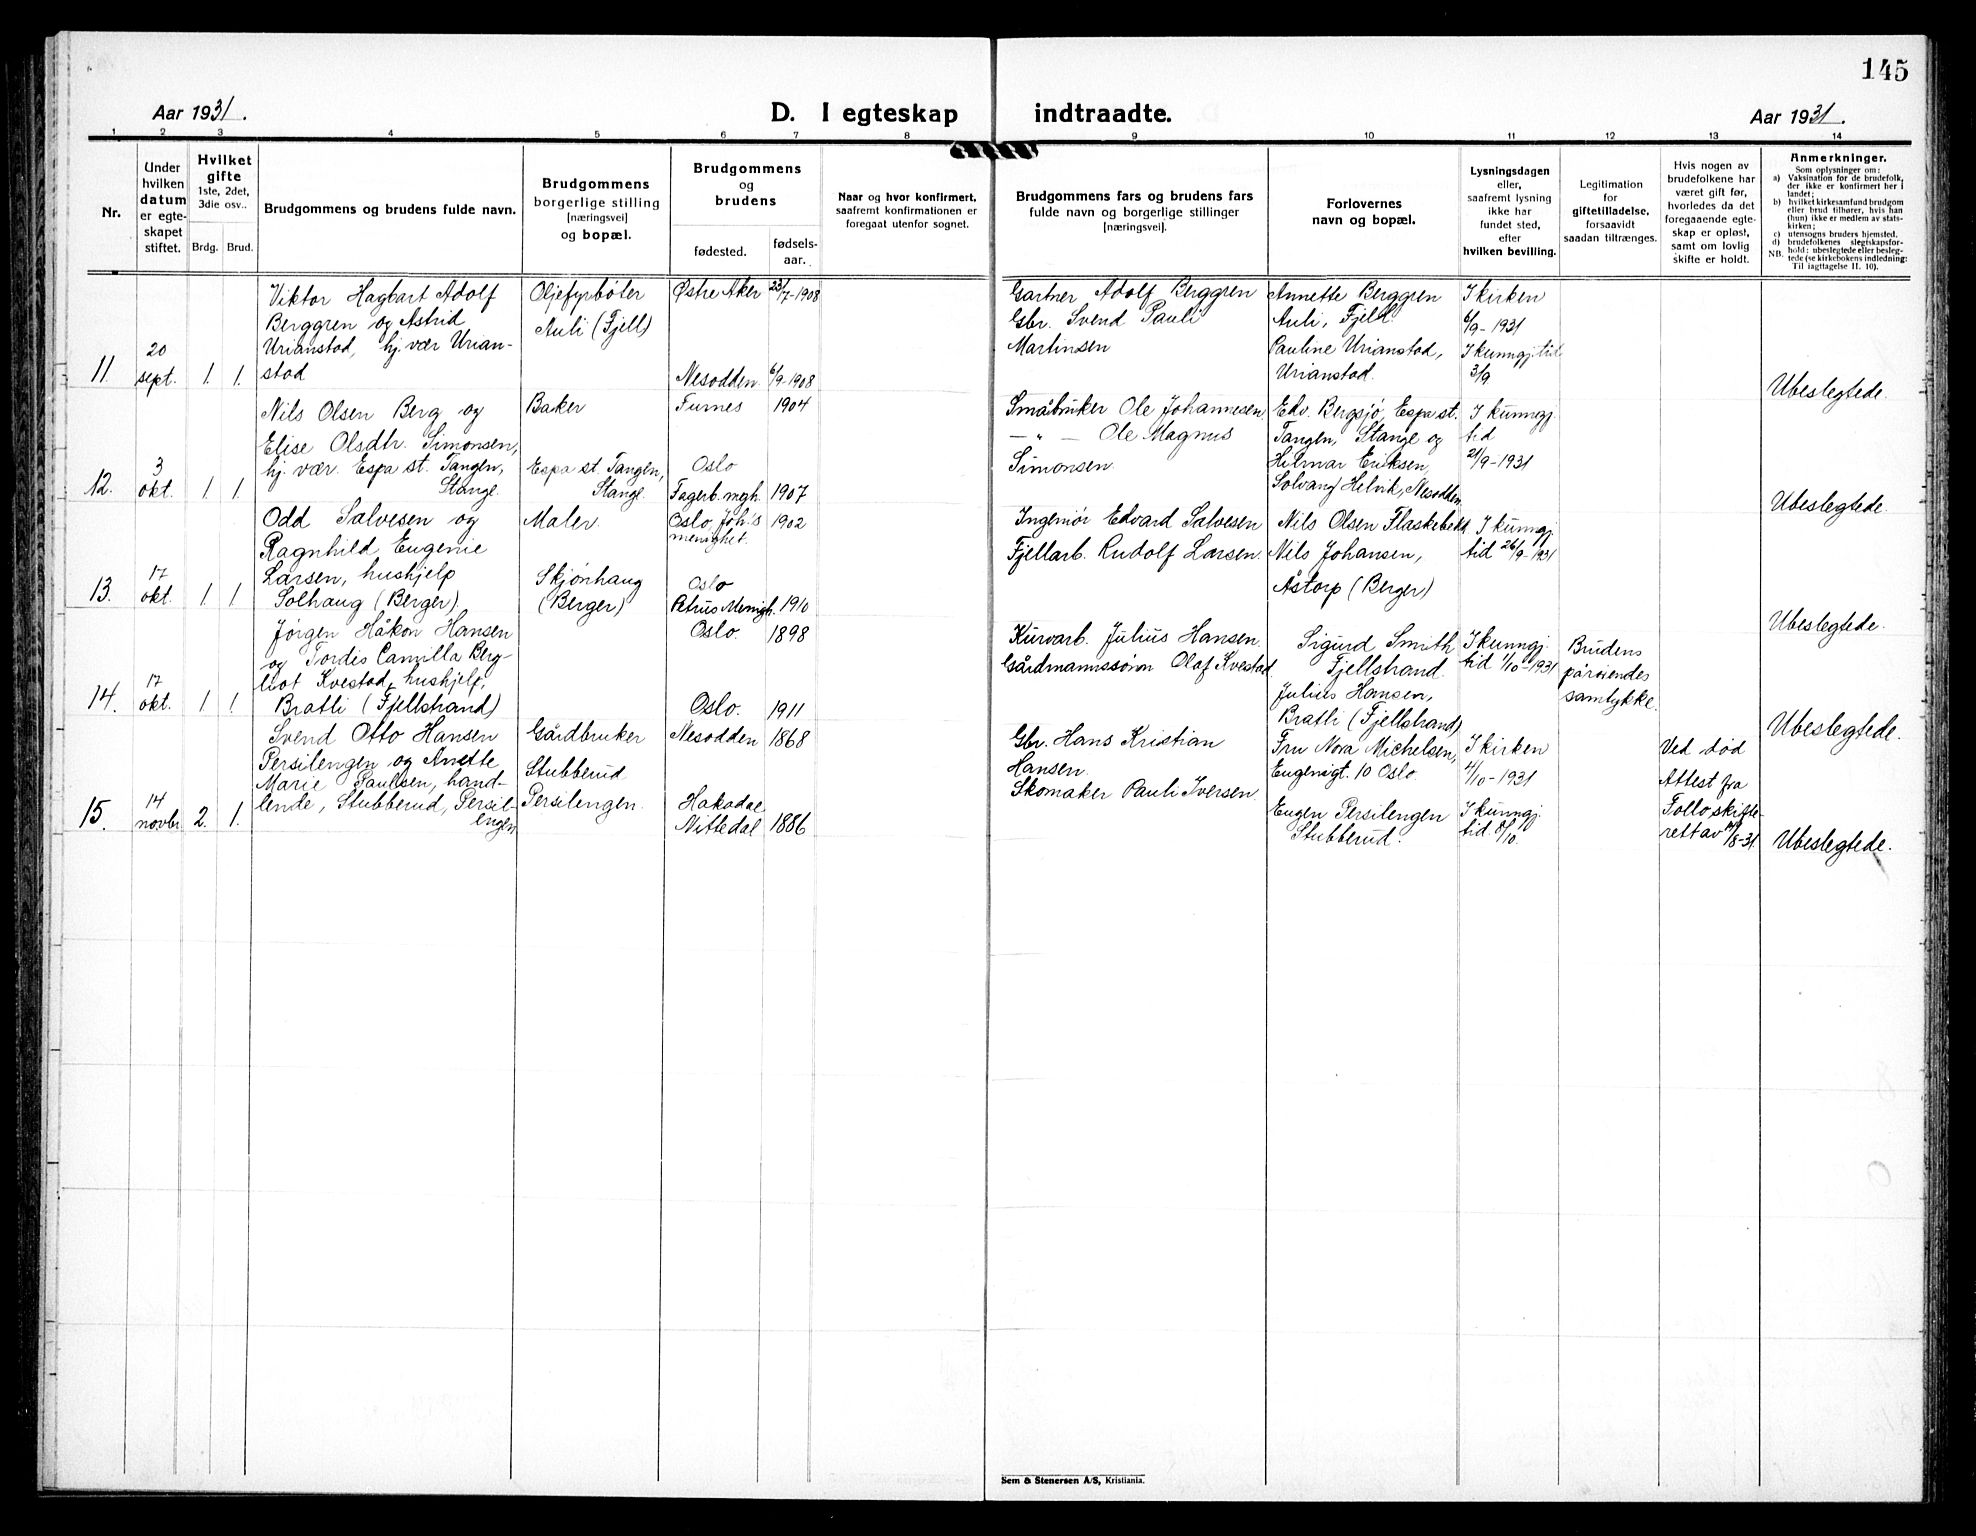 145
Aar 1931.
D. I egteskap indtraadte.
Aar 1931.
1 2 3 4 5 6 7 8 9 10 11 12 13 14
Nr.
Under
hvilken
datum
er egte-
skapet
stiftet.
Hvilket
gifte
1ste, 2det,
3die osv..
Brdg. Brud.
Brudgommens og brudens fulde navn.
Brudgommens
borgerlige stilling
[næringsvei]
og bopæl.
Brudgommens
og
brudens
fødested.
fødsels-
aar.
Naar og hvor konfirmert,
saafremt konfirmationen er
foregaat utenfor sognet.
Brudgommens fars og brudens fars
fulde navn og borgerlige stillinger
[næringsvei].
Forlovernes
navn og bopæl.
Lysningsdagen
eller,
saafremt lysning
ikke har
fundet sted,
efter
hvilken bevilling.
Legitimation
for
giftetilladelse,
forsaavidt
saadan tiltrænges.
Hvis nogen av
brudefolkene har
været gift før,
hvorledes da det
foregaaende egte-
skap er opløst,
samt om lovlig
skifte er holdt.
Anmerkninger.
Som oplysninger om:
a) Vaksination for de brudefolk,
der ikke er konfirmert her i
landet;
b) hvilket kirkesamfund brudgom
eller brud tilhører, hvis han
(hun) ikke er medlem av stats-
kirken;
c) utensogns bruders hjemsted.
d) brudefolkenes slegtskapsfor-
NB. hold: ubeslegtede eller besleg-
tede (se kirkebokens indledning:
Til iagttagelse II. 10).
11.
20
sept.
1. 1.
Viktor Hagbart Adolf
Berggren og Astrid
Urianstad, hj. vær Urian-
stad
Oljefyrbøter
Auli (Fjell)
Østre Aker 23/7-1908
Nesodden 6/9-1908
Gartner Adolf Berggren
Gbr. Svend Pauli
Martinsen
Annette Berggren
Auli, Fjell.
Pauline Urianstad,
Urianstad.
I kirken
6/9-1931
I kunngj. tid
3/9
Ubeslegtede.
12.
3
okt.
1. 1.
Nils Olsen Berg og
Elise Olsdtr. Simonsen,
hj. vær. Espa st. Tangen,
Stange.
Baker
Espa st. Tangen,
Stange.
Furnes 1904
Oslo
Fagerb. megh. 1907
Småbruker Ole Johannesen
— " — Ole Magnus
Simonsen
Edv. Bergsjø, Espa st.
Tangen, Stange og
Hilmar Eriksen,
Solvang Helvik, Nesodden
I kunngj.
tid
21/9-1931
Ubeslegtede.
13.
17
okt.
1. 1.
Odd Salvesen og
Ragnhild Eugenie
Larsen, hushjelp
Solhaug (Berger).
Maler.
Skjønhaug
(Berger)
Oslo, Joh.s 1902
menighet.
Oslo
Petrus Menigh. 1910
Ingeniør Edvard Salvesen
Fjellarb. Rudolf Larsen.
Nils Olsen Flaskebekk
Nils Johansen,
Åstorp (Berger)
I kunngj.
tid 26/9-1931
Ubeslegtede.
14.
17
okt.
1 1.
Jørgen Håkon Hansen
og Tordis Camilla Berg-
liot Kvestad, hushjelp,
Bratli (Fjellstrand)
Oslo. 1898
Oslo. 1911
Kurvarb. Julius Hansen.
Gårdmannssønn Olaf Kvestad.
Sigurd Smith
Fjellstrand.
Julius Hansen,
Bratli (Fjellstrand)
I kunngj.
tid 1/10-1931
Brudens
pårørendes
samtykke.
Ubeslegtede.
15.
14
novbr.
2. 1.
Svend Otto Hansen
Persilengen og Anette
Marie Paulsen, hand-
lende, Stubberud, Persil-
engen
Gårdbruker
Stubberud
Persilengen.
Nesodden 1868
Hakadal
Nittedal 1886
Gbr. Hans Kristian
Hansen.
Skomaker Pauli Iversen
Fru Nora Michelsen,
Eugenigt. 10 Oslo.
Eugen Persilengen
Stubberud.
I kirken
4/10-1931
I kunngj.
tid. 8/10.
Ved død
Attest fra
Follo skifte-
rett av /8-31
Ubeslegtede.
Sem & Stenersen A/S, Kristiania.